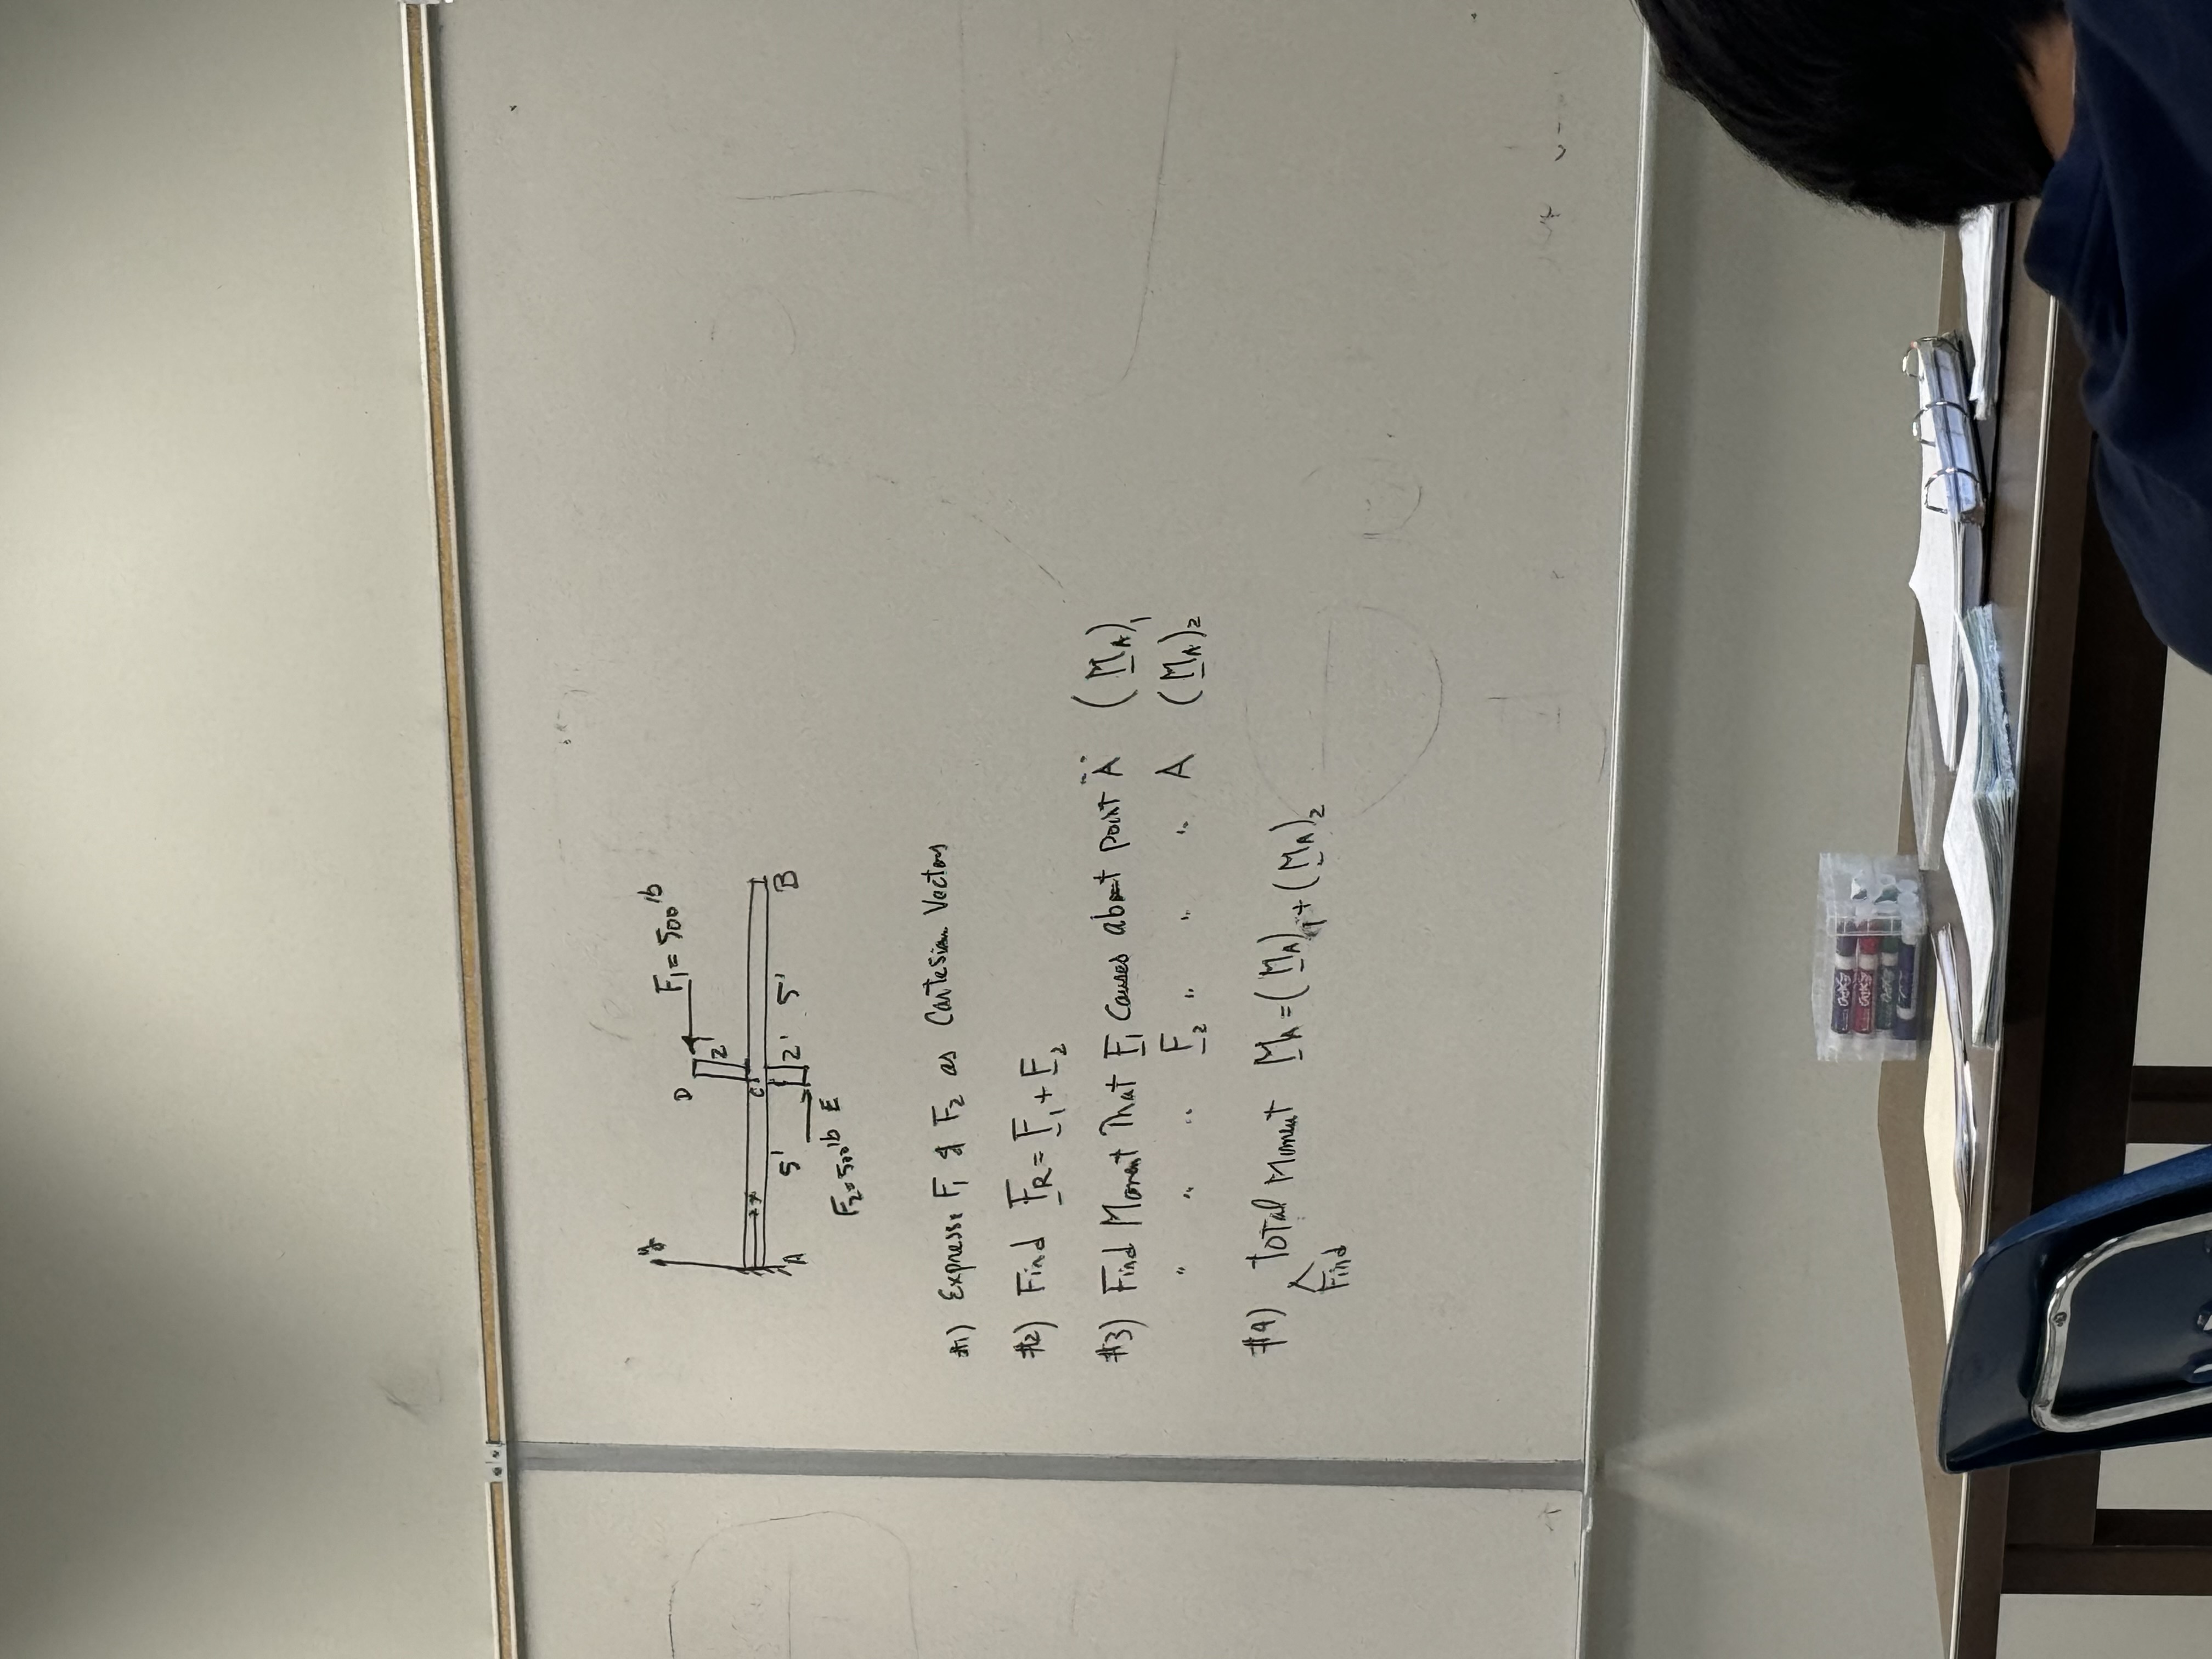 y
D
F₁ = 500 lb
2'
C
B
A
5'
2'
5'
E
F₂ = 500 lb
#1) Express F₁ & F₂ as Cartesian Vectors
#2) Find F_R = F₁ + F₂
#3) Find Moment That F₁ Causes about point "A" (M_A)₁
" " " F₂ " " " A (M_A)₂
#4) Total Moment M_A = (M_A)₁ + (M_A)₂
Find
EXPO
EXPO
EXPO